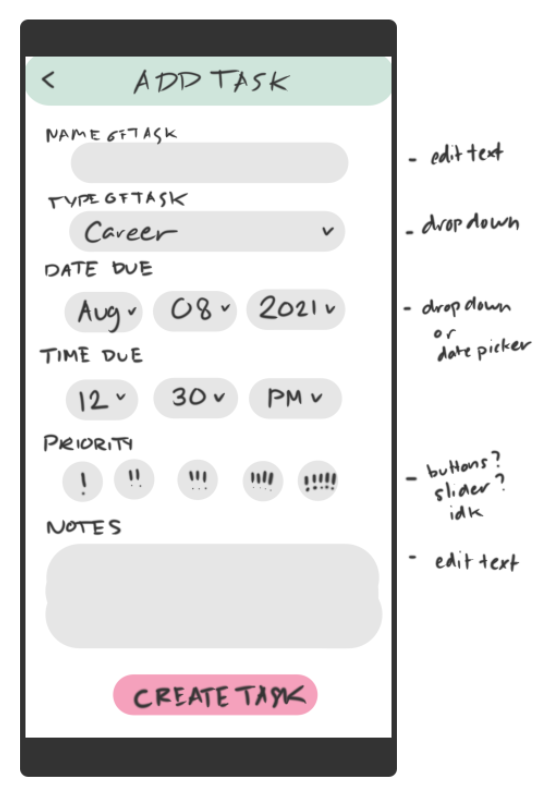 < ADD TASK
NAME OF TASK
- edit text
TYPE OF TASK
Career
- drop down
DATE DUE
Aug 08 2021
- drop down
or
date picker
TIME DUE
12 30 PM
PRIORITY
! !! !!! !!!! !!!!!
- buttons?
slider?
idk
NOTES
- edit text
CREATE TASK